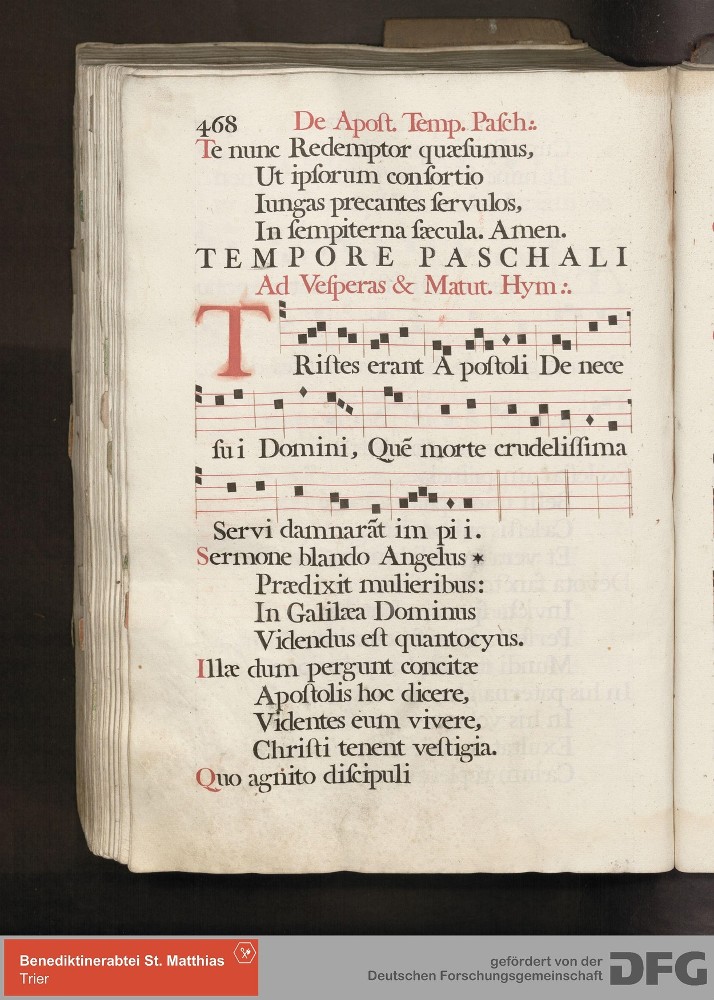 468 De Apoſt. Temp. Paſch:.
Te nunc Redemptor quæſumus,
Ut ipſorum conſortio
Iungas precantes ſervulos,
In ſempiterna ſæcula. Amen.
TEMPORE PASCHALI
Ad Veſperas & Matut. Hym:.
TRiſtes erant A poſtoli De nece
ſu i Domini, Quẽ morte crudeliſſima
Servi damnarãt im pi i.
Sermone blando Angelus *
Prædixit mulieribus:
In Galilæa Dominus
Videndus eſt quantocyus.
Illæ dum pergunt concitæ
Apoſtolis hoc dicere,
Videntes eum vivere,
Chriſti tenent veſtigia.
Quo agnito diſcipuli
Benediktinerabtei St. Matthias
Trier
gefördert von der
Deutschen Forschungsgemeinschaft
DFG